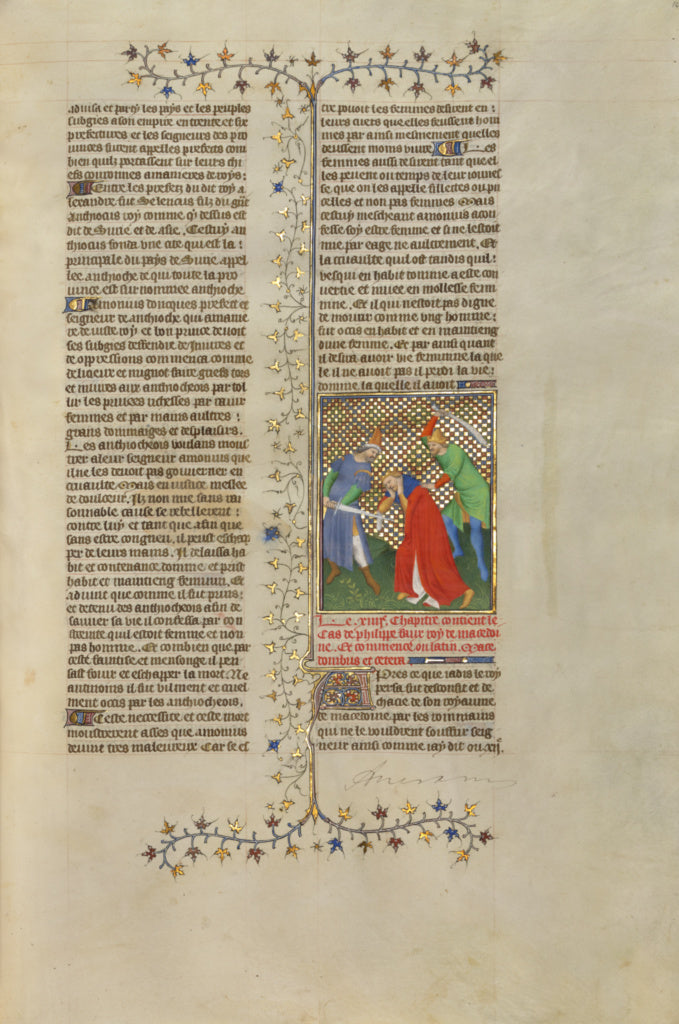 aduisa et party les pays et les peuples
subgies a son empire en trente et six
prefectures et les seigneurs des pro
uinces furent appelles prefects com
bien quilz portassent sur leurs chi
efs couronnes a manieres de roys:
Entre les prefetz du dit roy a
lexandre fut Seleucus filz du
Anthiocus roy comme dessus est
dit de Surie et de asie. Cestuy an
thiocus fonda vne cite qui est la:
principale du pays de Surie appel
lee anthioche de qui toute la pro
uince est surnommee anthioche
Amonius doncques prefect et
seigneur de anthioche qui a manie
re de iuste roy et bon prince deuoit
ses subgies deffendre de iniures et
de oppressions commenca comme
et mignot faire griefz tors
et iniures aux anthiocheois par tol
lir les priuees richesses par rauir
femmes et par mains aultres:
grans dommaiges et desplaisirs.
Les anthiocheois voulans mons
trer a leur seigneur amonius que
il ne les deuoit pas gouuerner en
cruaulte Mais en iustice meslee
de doulceur. Ilz non mie sans rai
sonnable cause se rebellerent:
contre luy et tant que afin que
sans estre congneu il peust eschap
per de leurs mains. Il delaissa ha
bit et contenance domme et prist
habit et maintieng feminin. Et
aduint que comme il fut prins:
et detenu des anthiocheois afin de
sauuer sa vie il confessa par con
trainte quil estoit femme et non
pas homme. Et combien que par
ceste faintise et mensonge il pen
sast fouir et eschapper la mort Ne
antmoins il fut vilment et cruel
ment occis par les anthiocheois.
Ceste necessite et ceste mort
monstrerent asses que amonius
deuint tres maleureux Car se es
tre pouoit les femmes desirent en:
leurs cuers que elles feussent hom
mes par ainsi mesmement quelles
deussent moins viure Les
femmes aussi desirent tant que el
les peuent ou temps de leur iounes
se que on les appelle fillettes ou pu
celles et non pas femmes Mais
cestuy meschant amonius a con
fesse soy estre femme et si ne lestoit
mie par eage ne aultrement. Et
la cruaulte quil ot tandis quil:
vesqui en habit domme a este con
uertie et muee en mollesse femi
nine. Et il qui nestoit pas digne
de mourir comme vng homme:
fut occis en habit et en maintieng
dune femme. Et par ainsi quant
il desira auoir vie feminine la que
le il ne auoit pas il perdi la vie:
domme la quelle il auoit
Le .xiiii. Chapitre contient le
Cas de philippe faulx roy de macedoi
ne. Et commence ou latin. Mace
donibus et cetera
Apres ce que iadis le roy
persa fut desconfit et de
chacie de son royaume
de macedoine par les rommains
qui ne le vouldrent souffrir seig
neur ainsi comme iay dit ou .xii.